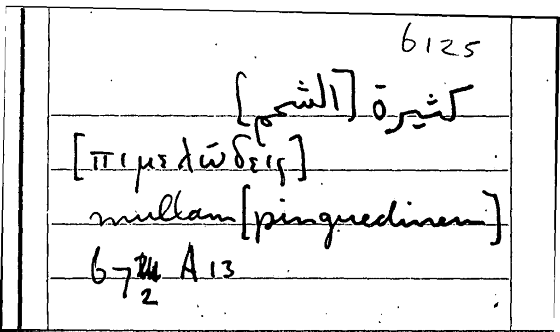 6125
كثيرة [الشحم]
[πιμελώδεις]
multam [pinguedinem]
672 A 13